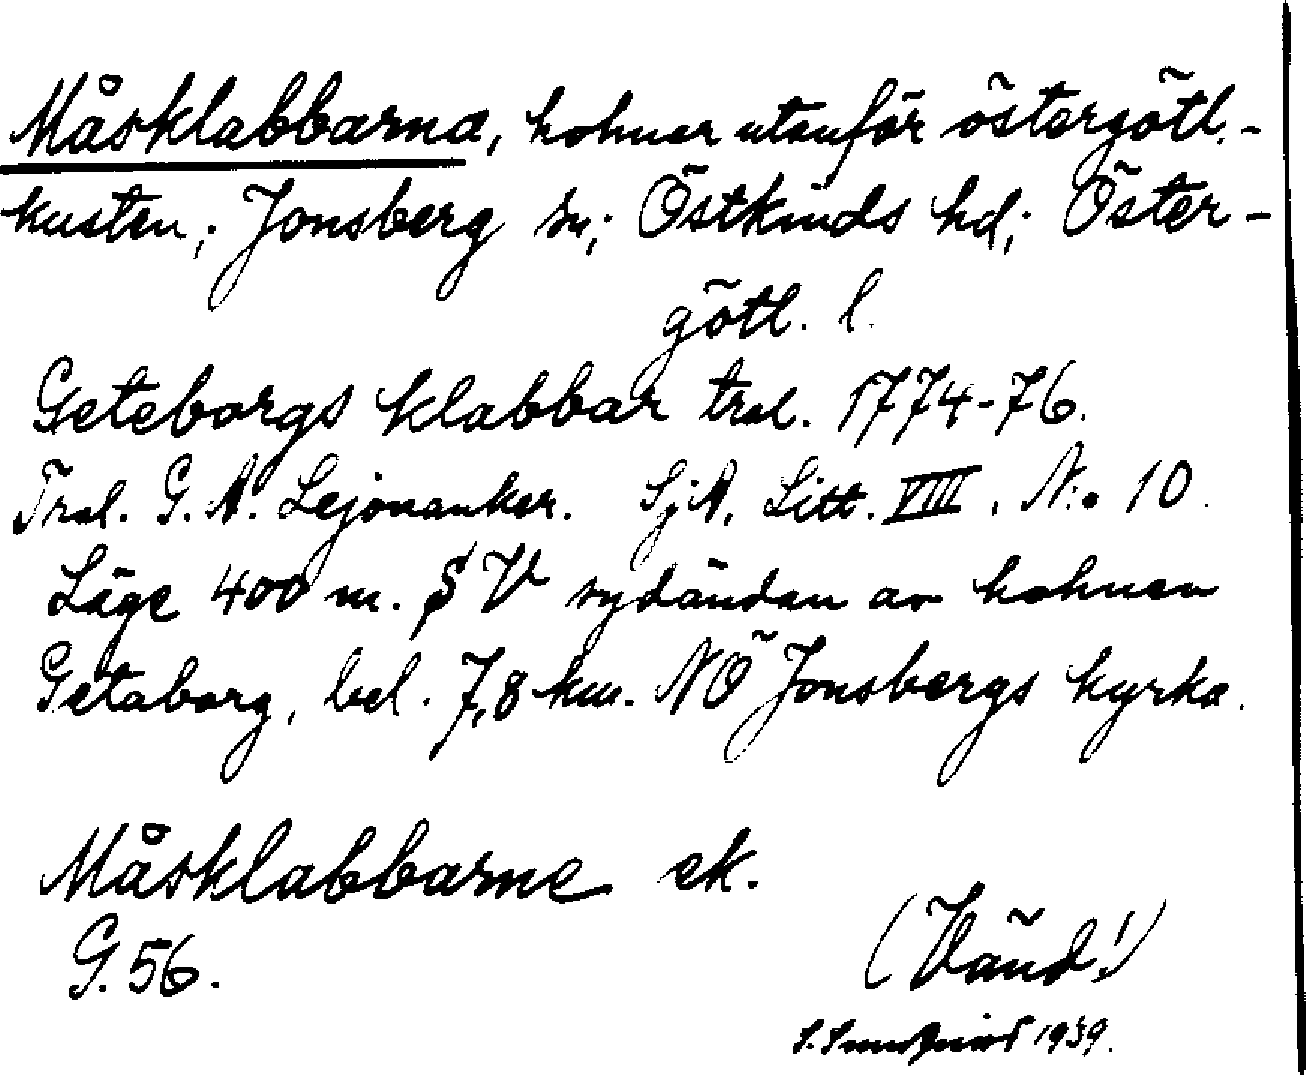 Måsklabbarna, holmar utanför östergötl.-
kusten; Jonsberg sn; Östkinds hd; Öster-
götl. l.
Geteborgs klabbar tral. 1774-76.
Tral. G. A. Lejonanker. SjA. Litt. VIII. N:o 10.
Läge 400 m. S V sydändan av holmen
Getaborg, bel. 7,8 km. NÖ Jonsbergs kyrka.
Måsklabbarne ek.
G. 56.
(Vänd!)
1939.